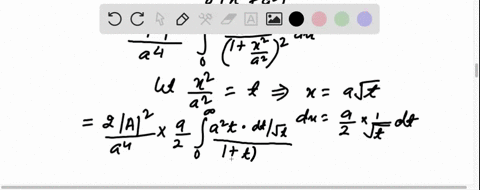 a⁴ ∫₀ (1 + x²/a²)² dx
Let x²/a² = t ⇒ x = a√t
= 2|A|²/a⁴ × a/2 ∫₀^∞ a²t · dt/√t / 1+t) dx = a/2 × 1/√t dt